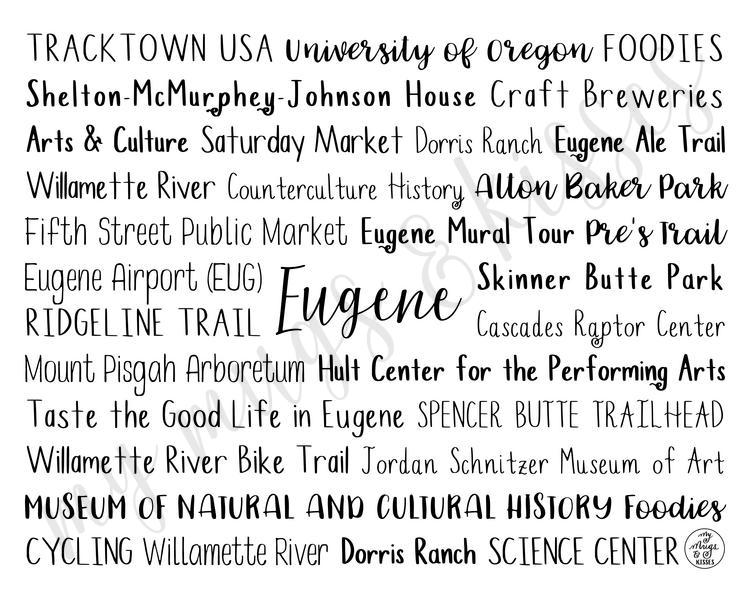 TRACKTOWN USA University of Oregon FOODIES
Shelton-McMurphey-Johnson House Craft Breweries
Arts & Culture Saturday Market Dorris Ranch Eugene Ale Trail
Willamette River Counterculture History Alton Baker Park
Fifth Street Public Market Eugene Mural Tour Pre's Trail
Eugene Airport (EUG) Skinner Butte Park
Eugene
RIDGELINE TRAIL Cascades Raptor Center
Mount Pisgah Arboretum Hult Center for the Performing Arts
Taste the Good Life in Eugene SPENCER BUTTE TRAILHEAD
Willamette River Bike Trail Jordan Schnitzer Museum of Art
MUSEUM OF NATURAL AND CULTURAL HISTORY Foodies
CYCLING Willamette River Dorris Ranch SCIENCE CENTER
my
Mugs
&
KISSES
my mugs & kisses